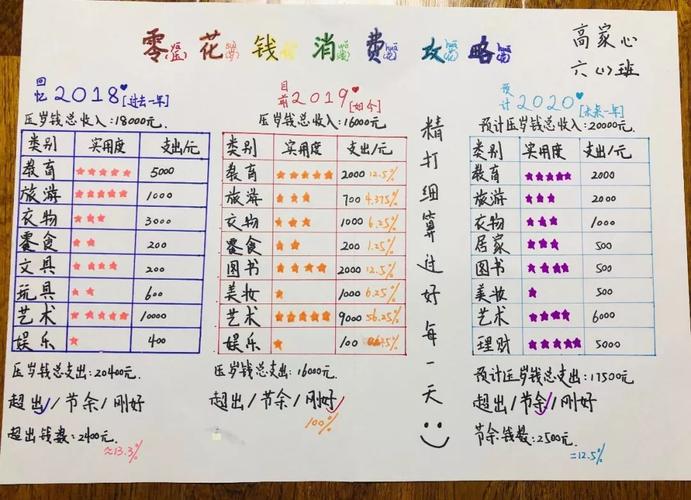 零花钱消费攻略
高家心
六(1)班
回忆2018[过去一年]
压岁钱总收入:18000元
类别 实用度 支出/元
教育 ★★★★★ 5000
旅游 ★★★★★ 1000
衣物 ★★★ 3000
零食 ★★ 200
文具 ★★★★ 200
玩具 ★★ 600
艺术 ★★★★★ 10000
娱乐 ★ 400
压岁钱总支出:20400元
超出/节余/刚好
超出钱数:2400元
≈13.3%
目前2019[如今]
压岁钱总收入:16000元
类别 实用度 支出/元
教育 ★★★★★ 2000 12.5%
旅游 ★★★ 700 4.375%
衣物 ★★★ 1000 6.25%
零食 ★★ 200 1.25%
图书 ★★★★ 2000 12.5%
美妆 ★ 1000 6.25%
艺术 ★★★★★ 9000 56.25%
娱乐 ★ 100
压岁钱总支出:16000元
超出/节余/刚好
100%
精打细算过好每一天
预计2020[未来一年]
预计压岁钱总收入:20000元
类别 实用度 支出/元
教育 ★★★★★ 2000
旅游 ★★ 2000
衣物 ★★★ 1000
居家 ★★★ 500
图书 ★★★★ 500
美妆 ★ 500
艺术 ★★★★ 6000
理财 ★★★★★ 5000
预计压岁钱总支出:17500元
超出/节余/刚好
节余钱数:2500元
=12.5%